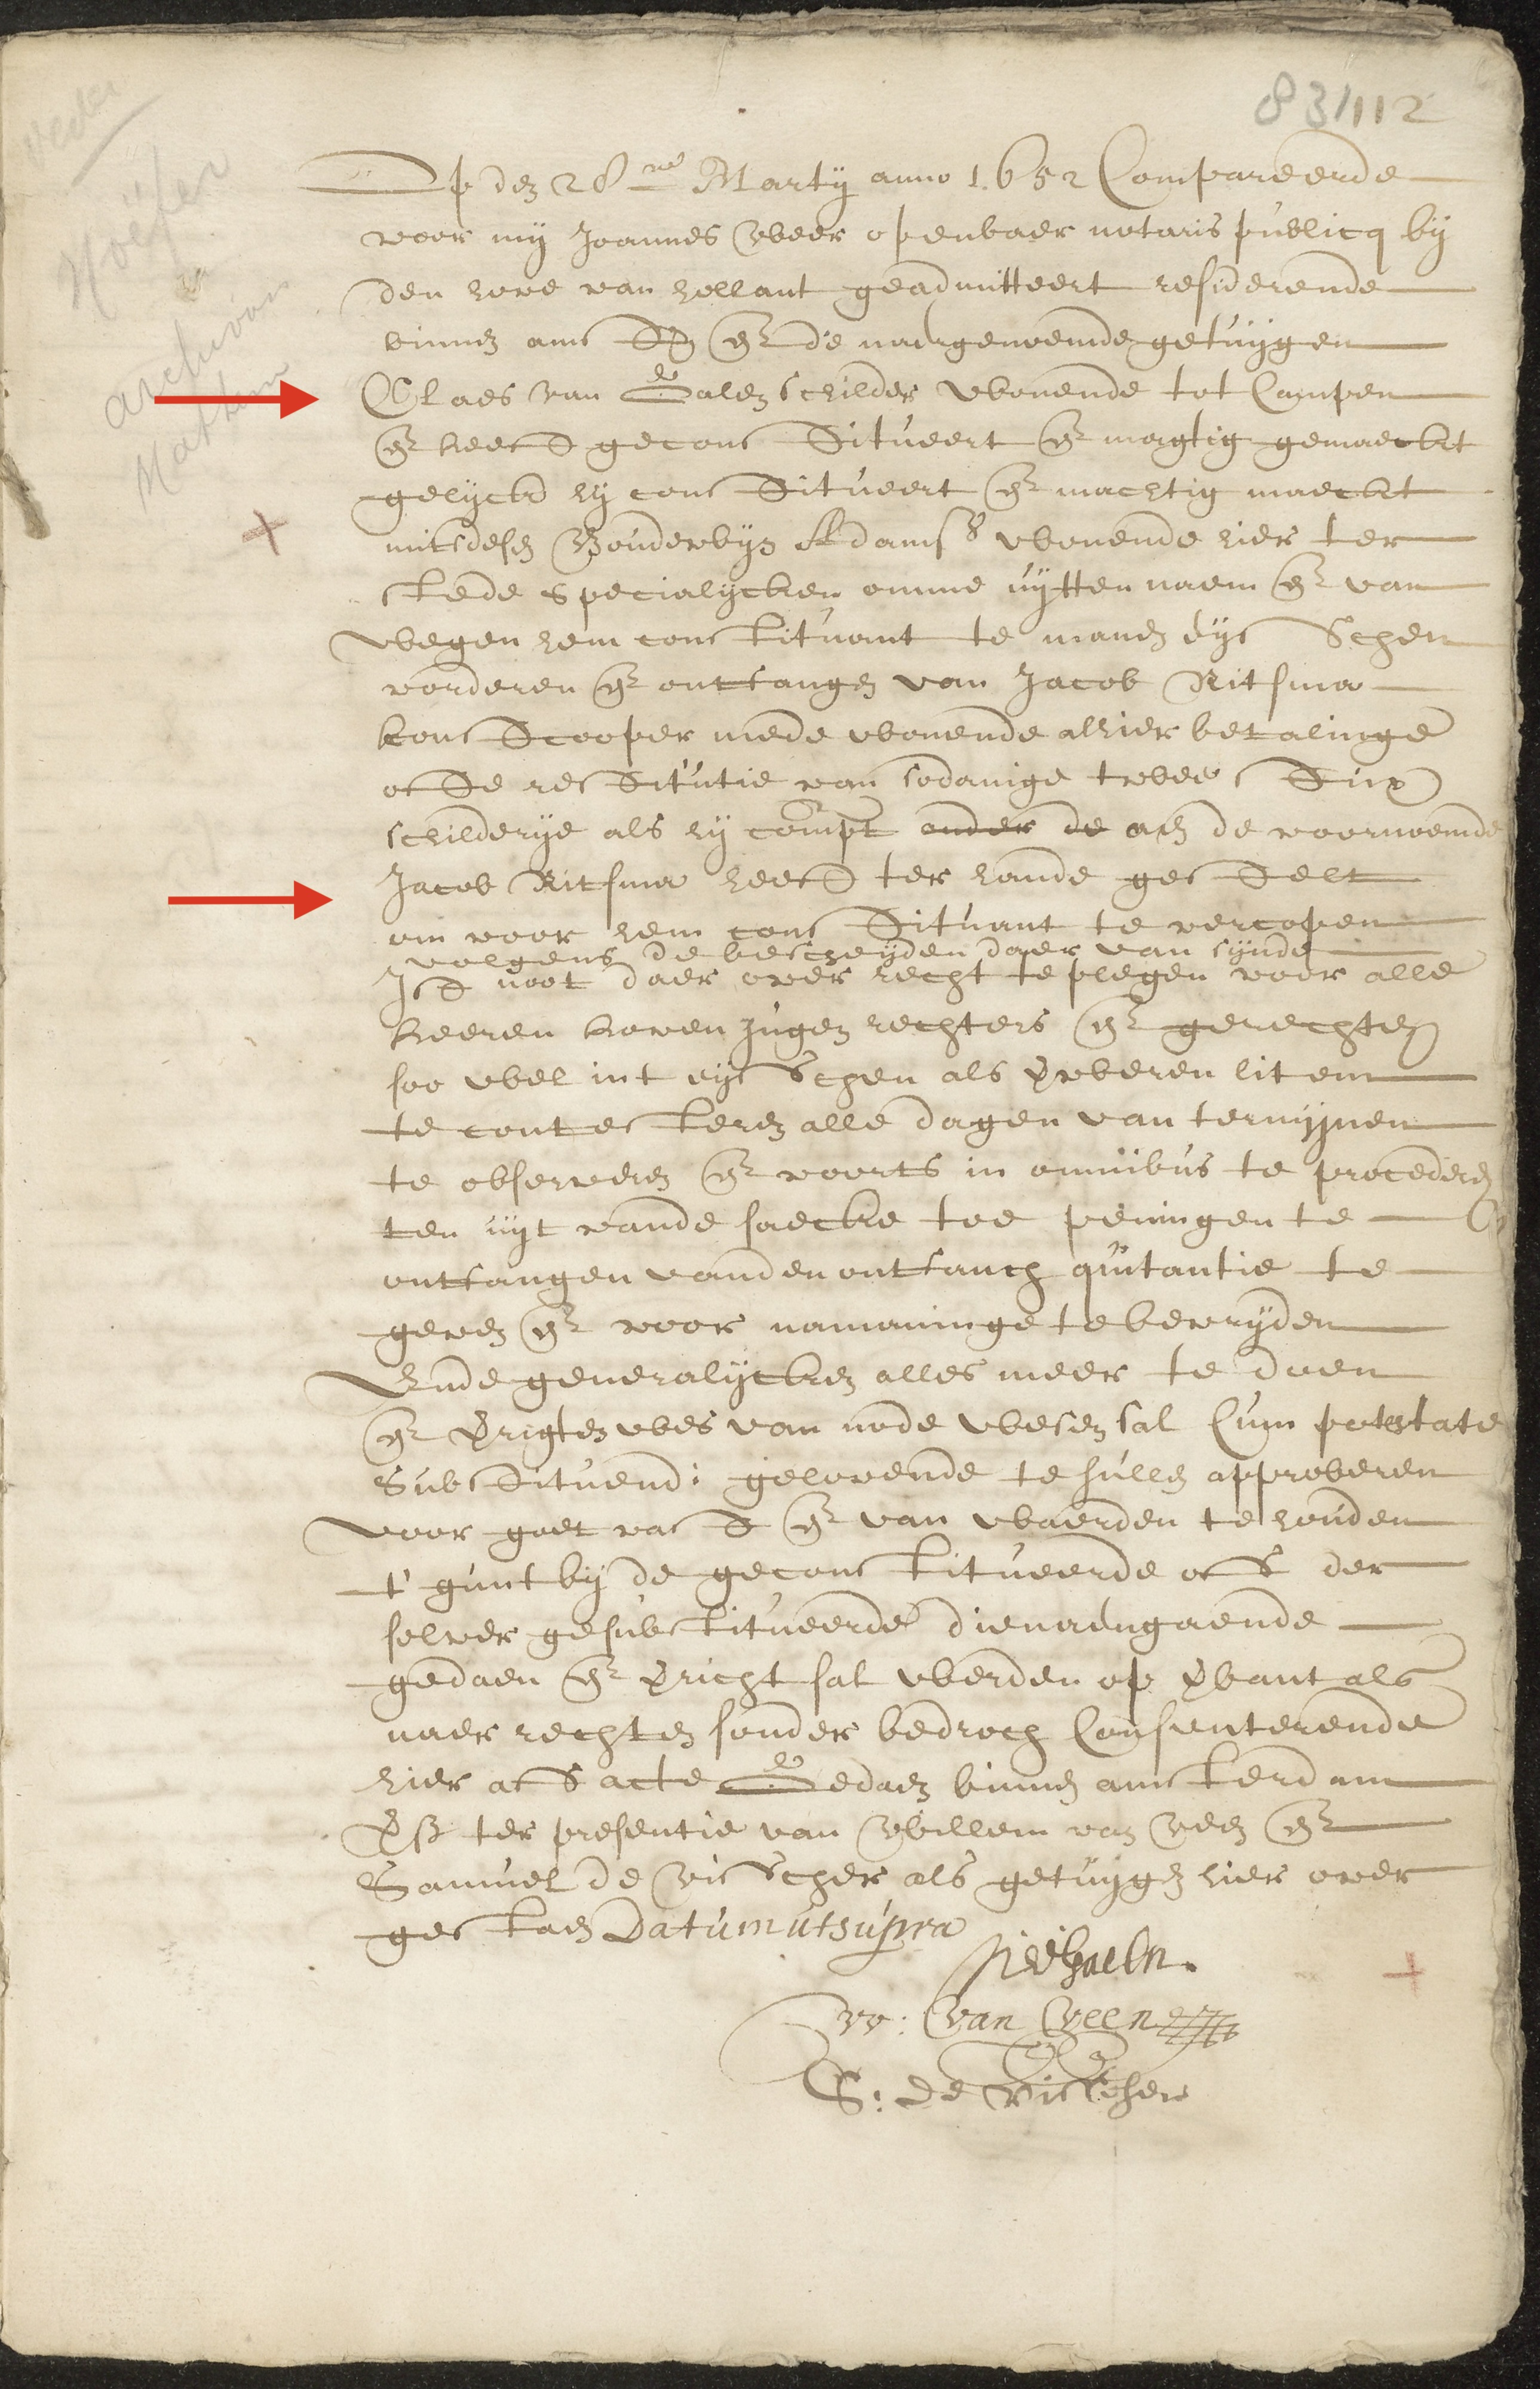 83/112
Op den 28en Marty anno 1652 Compareerde
voor my Joannes Weer openbaer notaris publicq by
den hove van hollant geadmitteert residerende
binnen amst en de naergenoemde getuygen
Claes van Galen schilder wonende tot Campen
en heeft geconstitueert en magtig gemaeckt
gelyck hy constitueert en machtig maeckt
mitsdesen Boudewyn Adams wonende hier ter
stede specialycken omme uytten naem en van
wegen hem constituant te manen eysschen
vorderen en ontfangen van Jacob Ritsma
konstcooper mede wonende alhier betalinge
ofte restitutie van sodanige twee stux
schilderye als hy compt onder de aen de voornoemde
Jacob Ritsma heeft ter hande gestelt
om voor hem constituant te vercopen
volgens de bescheyden daer van synde
Ist noot daer over recht te plegen voor alle
heeren hoven jugen rechters en gerechten
soo wel int eysschen als verweren litem
te contesteren alle dagen van termynen
te observeren en voorts in omnibus te procederen
ten uyt vande saecke toe peningen te
ontfangen vanden ontfanch quitantie te
geven en voor namaninge te bevryden
Ende generalycken alles meer te doen
en verrigten wes van node wesen sal Cum potestate
Substituendi gelovende te sullen approberen
voor goet vast en van waerden te houden
t' gunt by de geconstitueerde ofte der
selver gesubstitueerde dienaengaende
gedaen en verricht sal werden op verbant als
naer rechten sonder bedroch Consenterende
hier af acte Gedaen binnen amsterdam
ter presentie van Willem van Veen en
Samuel de Visscher als getuygen hier over
gestaen Datum utsupra
W: van Veen
S: de Visscher